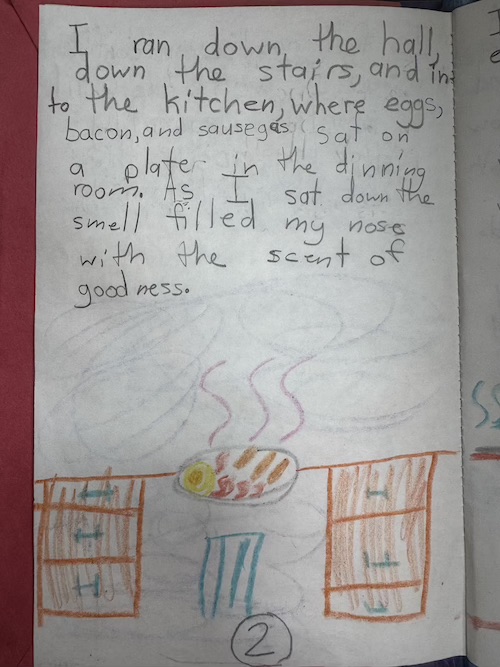 I ran down the hall,
down the stairs, and in
to the kitchen, where eggs,
bacon, and sausegas sat on
a plate in the dinning
room. As I sat down the
smell filled my nose
with the scent of
goodness.
2